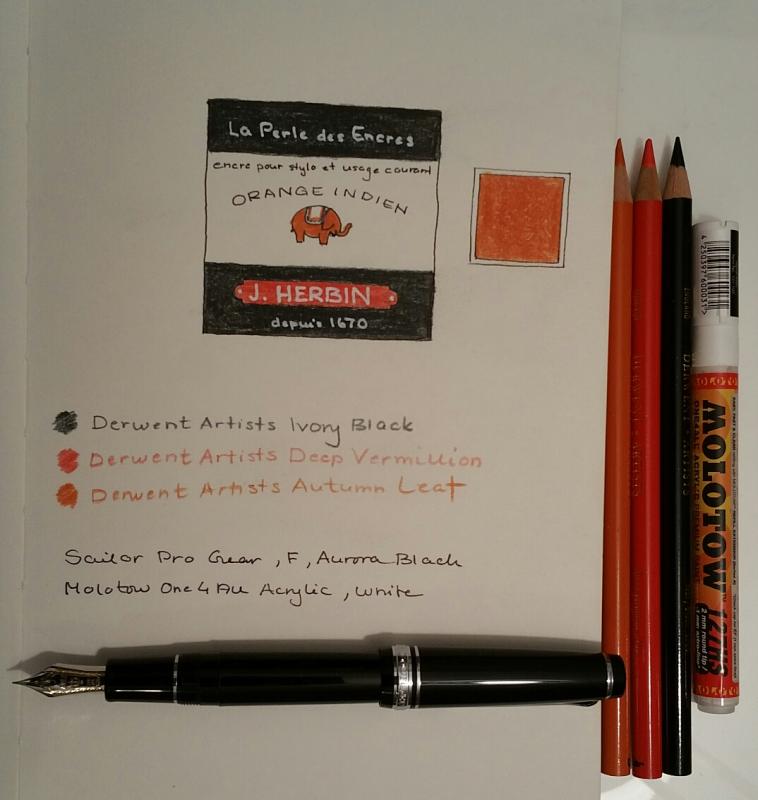 La Perle des Encres
encre pour stylo et usage courant
ORANGE INDIEN
J. HERBIN
depuis 1670
Derwent Artists Ivory Black
Derwent Artists Deep Vermillion
Derwent Artists Autumn Leaf
Sailor Pro Gear , F , Aurora Black
Molotow One 4 All Acrylic , White
4 250397 600031 >
MOLOTOW
MOLOTOW™ 127HS
2 mm round tip /